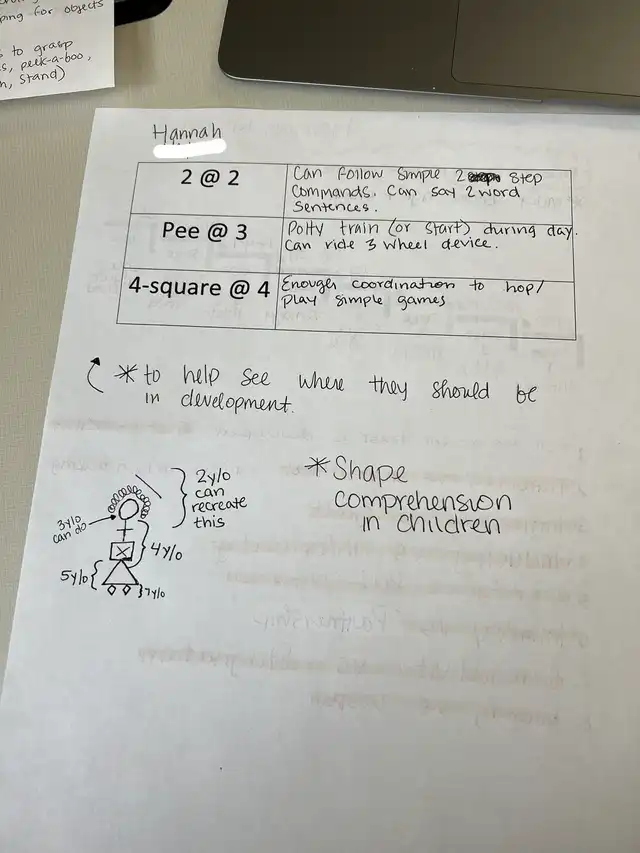 ping for objects
to grasp
peek-a-boo,
stand)
Hannah
2 @ 2
Can follow simple 2 step
commands. Can say 2 word
sentences.
Pee @ 3
Potty train (or start) during day.
Can ride 3 wheel device.
4-square @ 4
Enough coordination to hop/
play simple games
* to help see where they should be
in development.
2y/o
can
recreate
this
3y/o
can do
4y/o
5y/o
7y/o
* Shape
comprehension
in children
Partnership